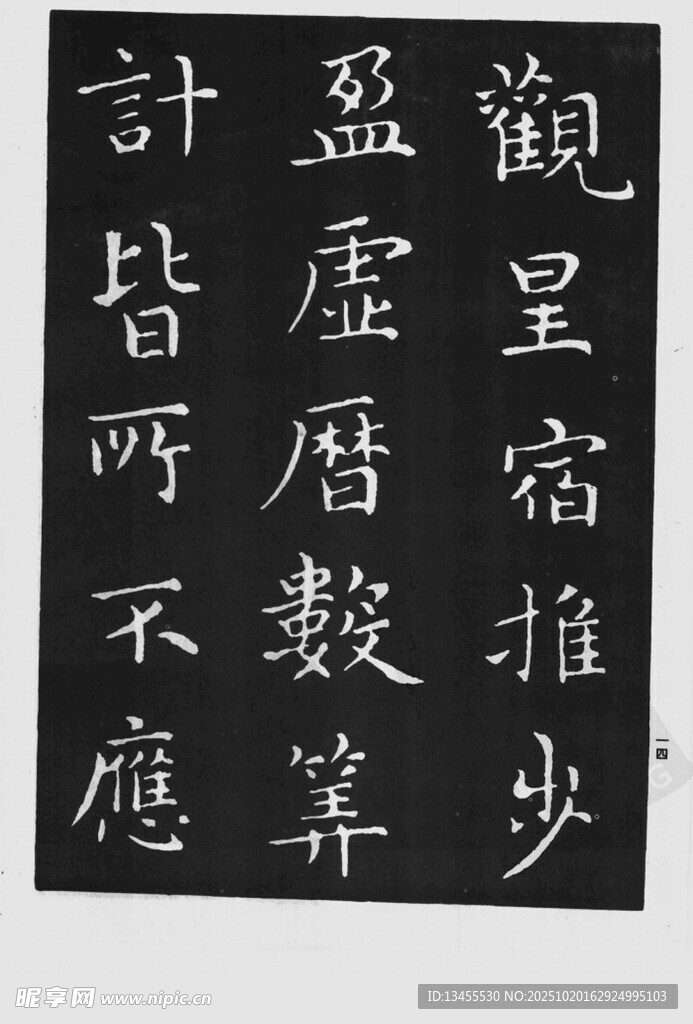 觀星宿推步
盈虛曆數筭
計皆所不應
一四
昵享网 www.nipic.cn
ID:13455530 NO:20251020162924995103